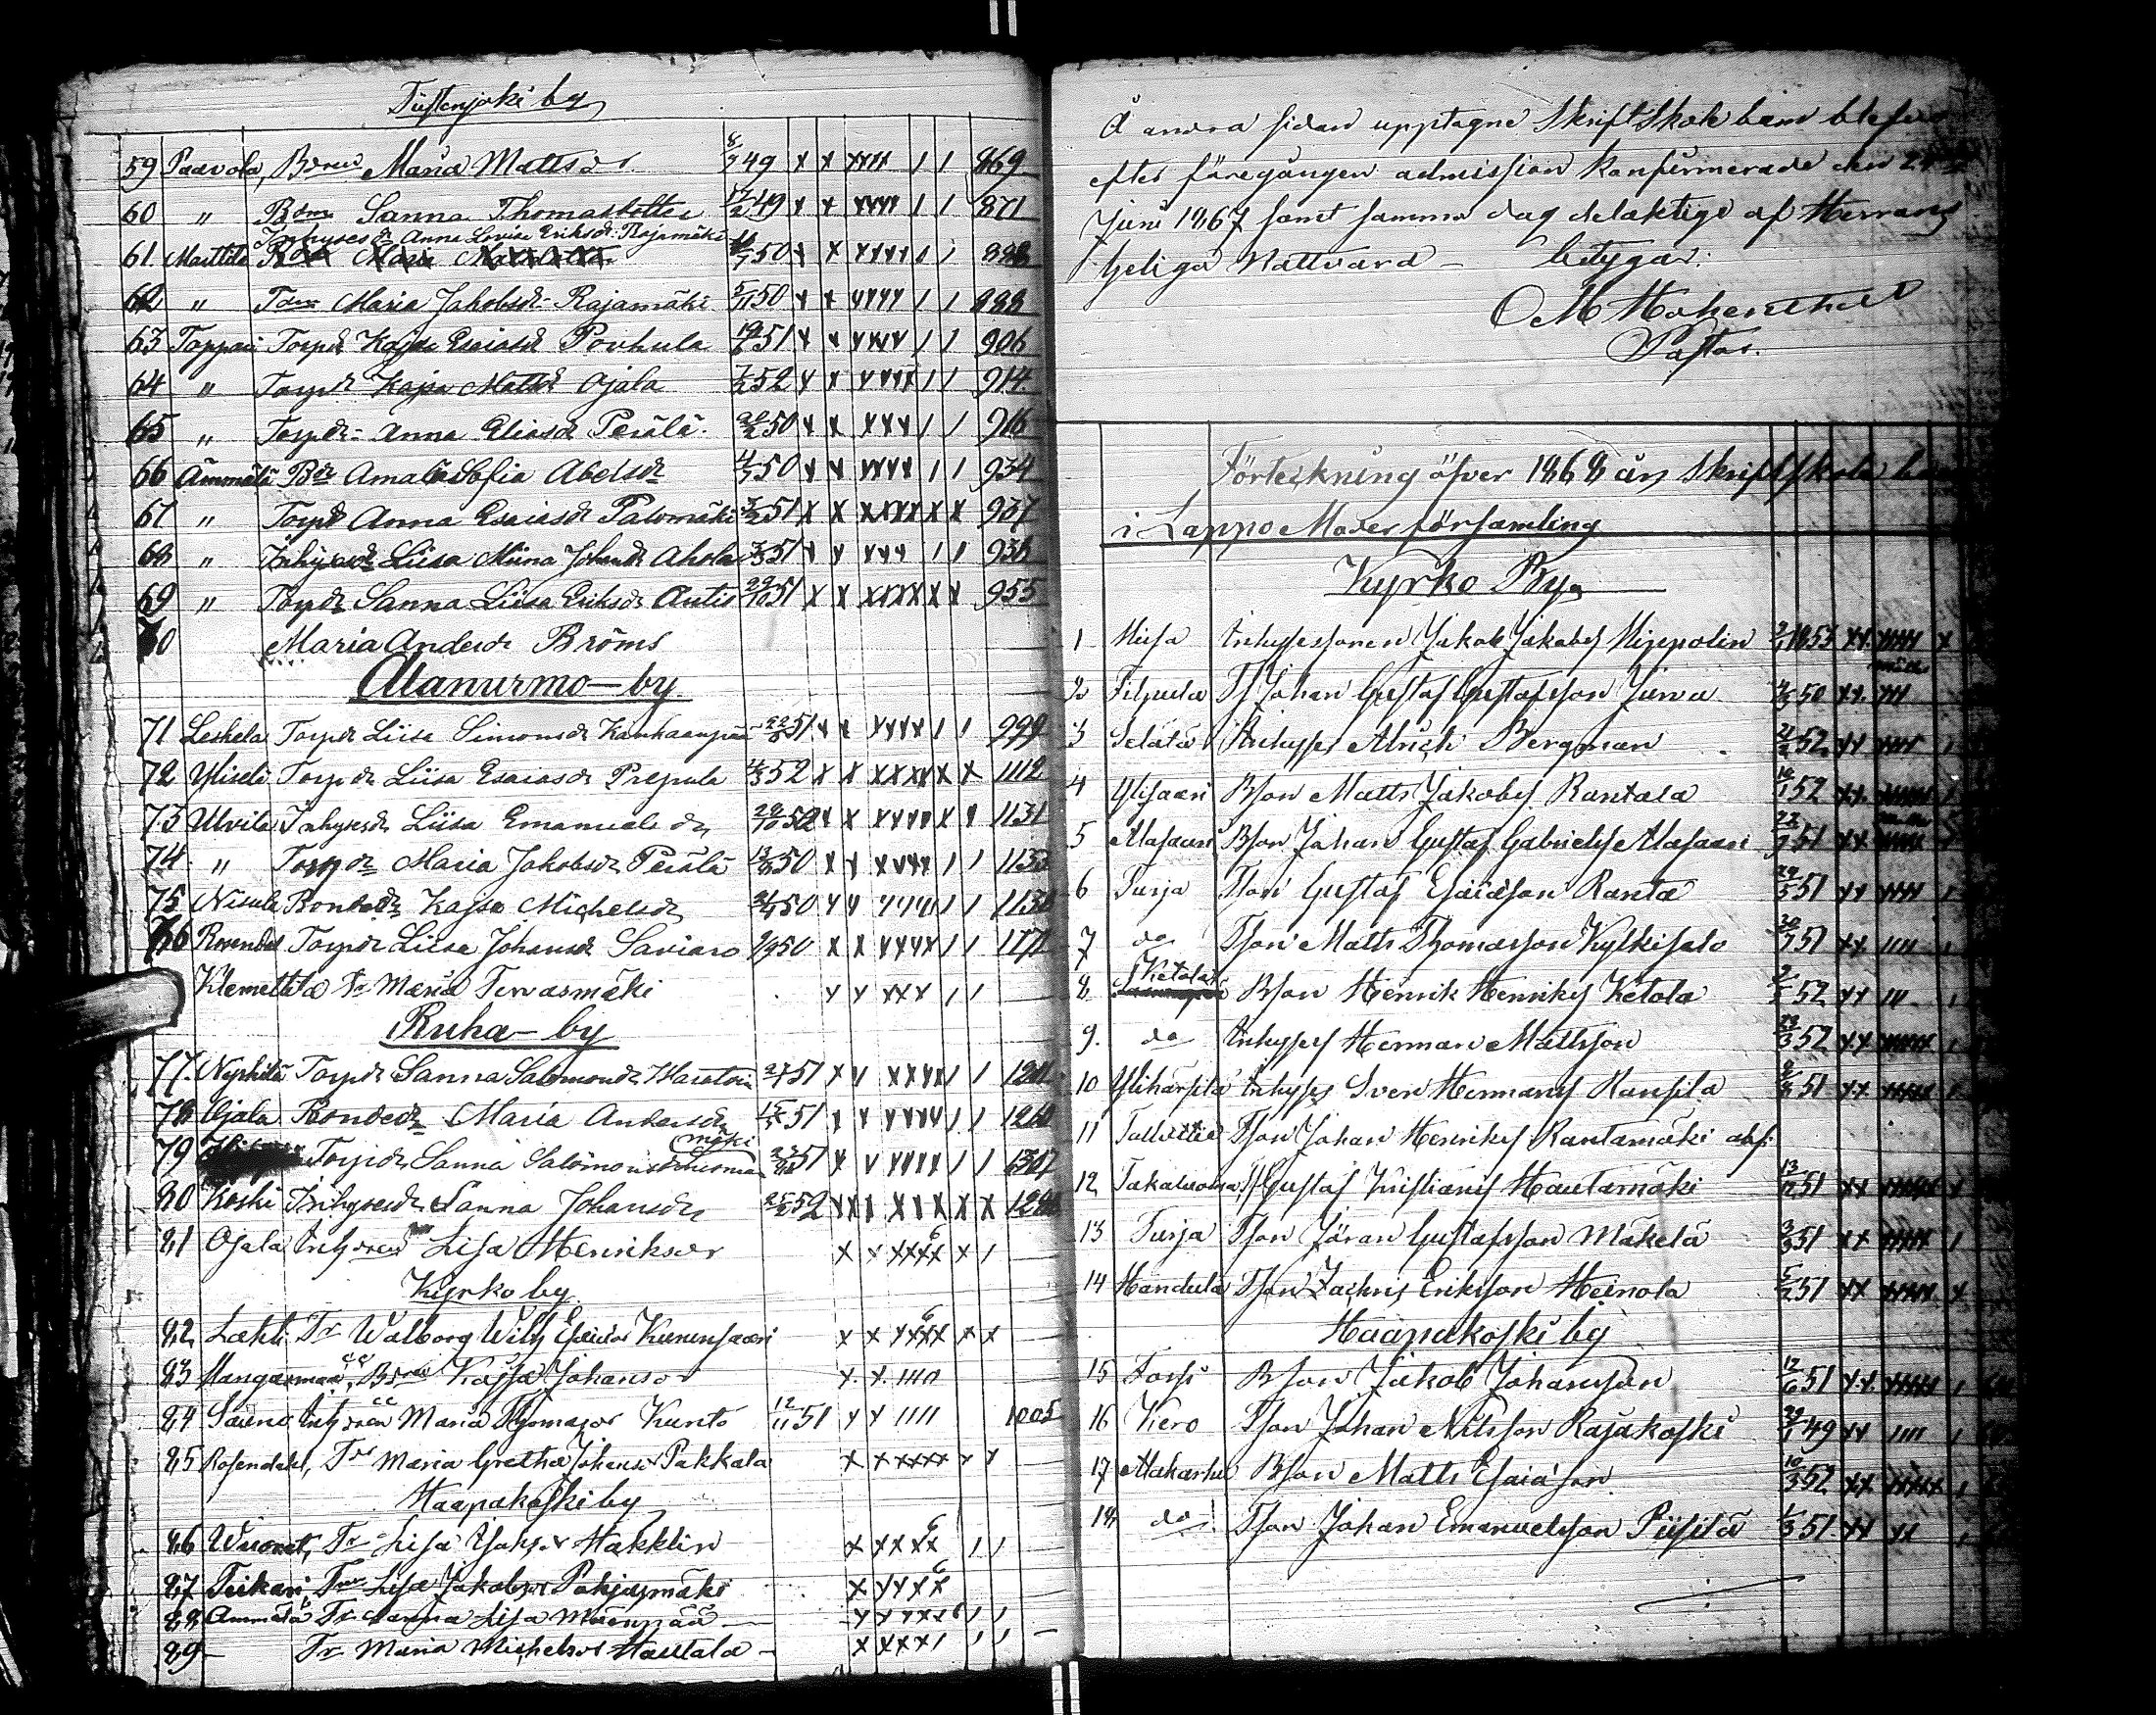 Tiistenjoki by
59 Paavola, Bdren Maria Mattsdr 8/7 49 x x xxxx / / 869
60 " Bdm Sanna Thomasdotter 17/2 49 x x xxxx / / 871
Inhysesdr Anna Lovisa Eriksdr Rajamäki
61 Marttila 50 x x xxxxx / /
62 " Tdr Maria Jakobsdr Rajamäki 5/11 50 x x xxxx / / 888
63 Toppari Torpdr Kajsa Esaiasdr Pouhula 19/6 51 x x xxxx / / 906
64 " Torpdr Kajsa Mattsdr Ojala 52 x x xxxx / / 914
65 " Torpdr Anna Eliasdr Perälä 50 x x xxxx / / 916
66 Ämmälä Bdr Amalia Sofia Abelsdr 4/7 50 x x xxxx / / 934
67 " Torpdr Anna Esaiasdr Palomäki 51 x x xxxxx x x 937
68 " Inhysesdr Liisa Miina Johansdr Ahola 51 x x xxx / / 938
69 " Torpdr Sanna Liisa Eriksdr Autio 29/10 51 x x xxxxx x x 955
70 Maria Andersdr Bröms
Alanurmo - by
71 Leskela Torpdr Liisa Simonsdr Kankaanpää 22/8 51 x x xxxx / / 999
72 Yliseli Torpdr Liisa Esaiasdr Prepula 4/3 52 x x xxxxx x x 1112
73 Ulvila Inhysesdr Liisa Emanuelsdr 29/10 52 x x xxxx x x 1131
74 " Torpdr Maria Jakobsdr Perälä 13/8 50 x x xxxx / / 1133
75 Nisula Bondedr Kajsa Michelsdr 50 x x xxxx / /
76 Rosendal Torpdr Liisa Johansdr Saviaro 50 x x xxxx / /
Klemettilä Tr Maria Tervasmäki x x xxxx / /
Ruha - by
77. Nyhilä Torpdr Sanna Salomonsdr 51 x x xxxx / /
78 Ojala Bondedr Maria Andersdr 51 x x xxxx / /
79 Torpdr Sanna Salomonsdr Luoma mäki 51 x x xxxx / / 1307
80 Koski Inhysesdr Sanna Johansdr 25/2 52 x x x x x x x x
81 Ojala Inhdren Lisa Henriksdr x x xxxx x /
Kyrko by
82 Lahti Tr Walborg Wilh Esaiasdr Kuncusaari x x xxxx x x
83 Kangasmaa, Bdren Kajsa Johansdr x. x. ////
84 Sauno Inhdren Maria Thomasdr Kunto 12/11 51 x x //// 1005
85 Rosendahl, Tr Maria Gretha Johansdr Pakkala x x xxxx x x
Haapakoski by
86 Wuonet, Tr Lisa Jakobsdr Hakklin x xxxx / /
87 Teikari Tren Lisa Jakobsdr Pohjasmäki x xxxx
88 Ammälä Tr Sanna Lisa Mäenpää x xxxx / /
89 Tr Maria Michelsdr Hautala xxxx/ / /
Å andra sidan upptagne Skriftskole barn blefvo
efter föregången admission konfirmerade den 24
Juni 1867 samt samma dag delaktige af Herrans
heliga Nattvard - betygar:
Pastor.
Förteckning öfver 1868 års Skriftskola barn
i Lappo Moder församling
Kyrko By
1 Hisa Inhysessonen Jakob Jakobs Hippolin 1853 x x. xxxx x
2 Filpula Ts Johan Gustaf Gustafsson Jurva 50 x x xxx
3 Selätä Inhyses Alrich Bergman 52 x x xxxx
4 Ylisaari Bson Matts Jakobs Rantala 52 x x xxxx
5 Alasaari Bson Johan Gustaf Gabriels Alasaari 51 x x xxxx
6 Turja Tson Gustaf Esaiasson Ranta 29/5 51 x x xxxx
7 do Tson Matts Thomasson Kylkisalo 51 x x ////
8 Ketola Bson Henrik Henriks Ketola 52 x x ///
9. do Inhyses Herman Mattsson 52 x x xxxxx
10 Yliharsilä Inhyses Sven Hermans Hansila 51 x x xxxx
11 Tson Johan Henriks Rantamäki abs:
12 Takaluoma Ts Gustaf Kristians Hautamäki 13/12 51 x x xxxxx x
13 Turja Tson Jöran Gustafsson Mäkelä 3/3 51 x x xxxx /
14 Handula Tson Zachris Eriksson Heinola 5/2 51 x x xxxx x
Haapakoski by
15 Forss Bson Jakob Johansson 12/6 51 x x xxxxx /
16 Kero Tson Johan Nilsson Rajakoski 49 x x //// /
17 Makarhu Bson Matts Esaiason 10/3 52 x x xxxxx /
18 do Tson Johan Emanuelsson Piispilä 51 x x xx /